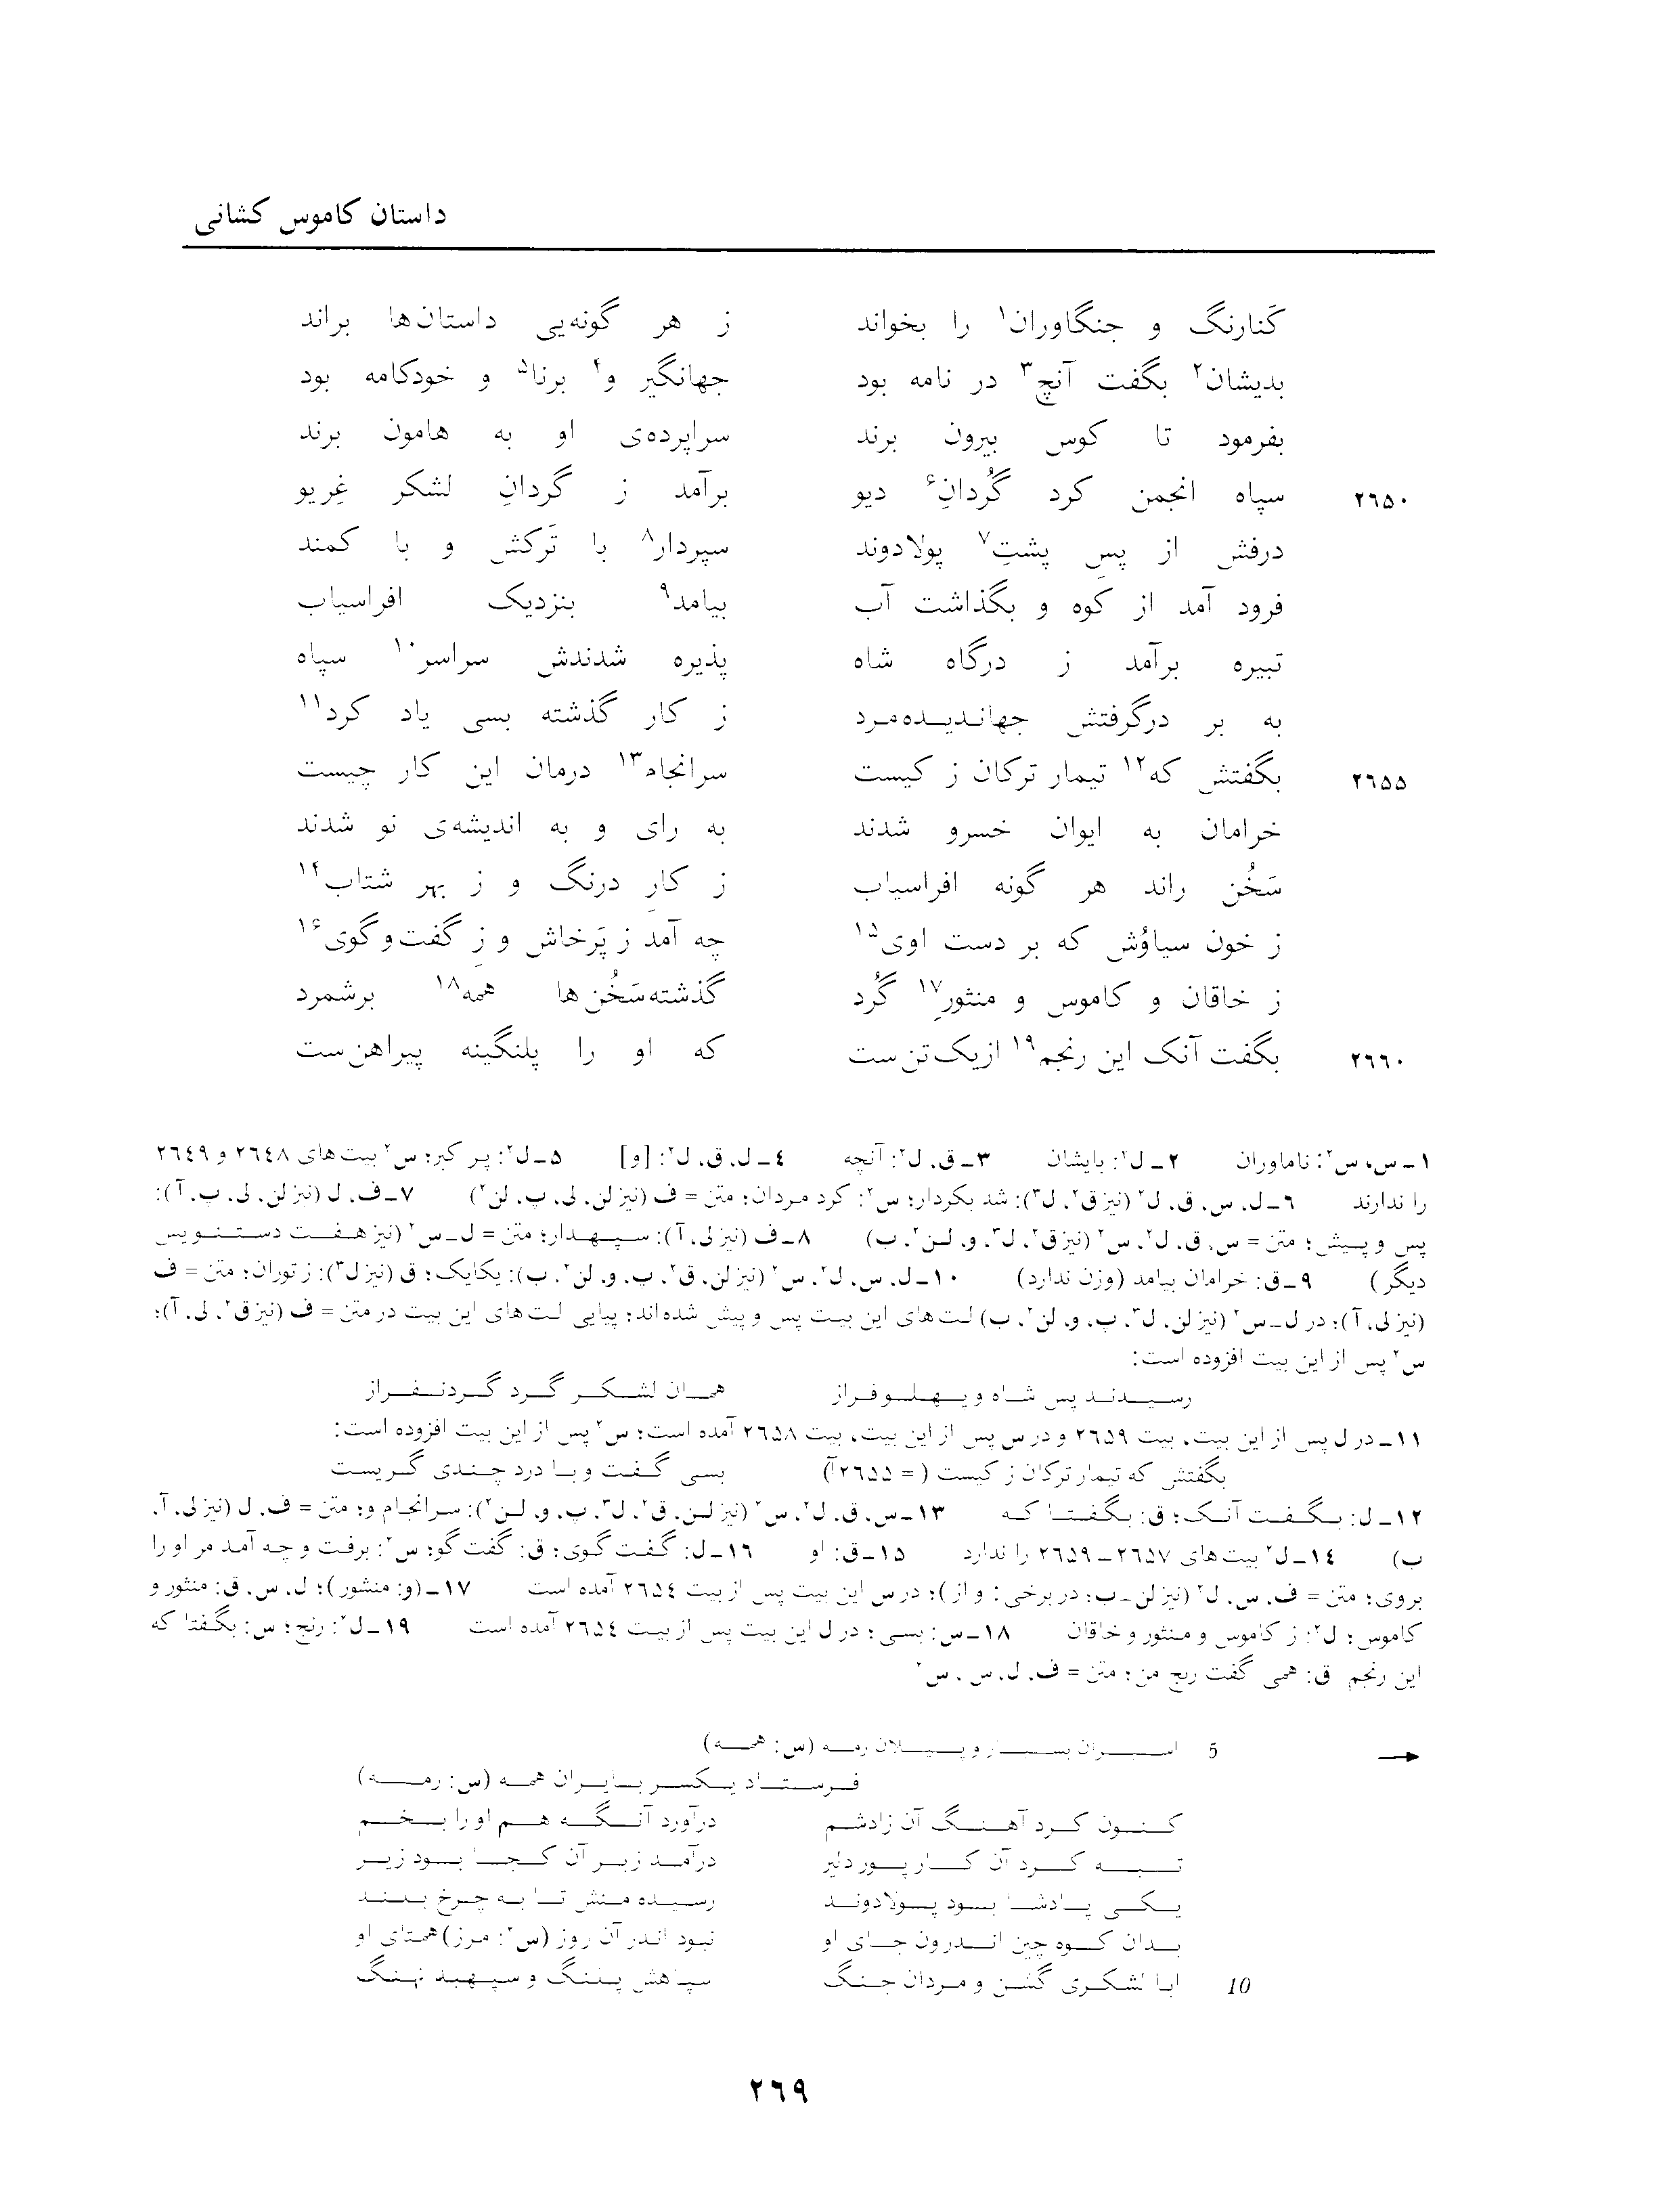 داستان کاموس کشانی
کَنارنگ و جنگاوران۱ را بخواند ز هر گونه‌یی داستان‌ها براند
بدیشان۲ بگفت آنچ۳ در نامه بود جهانگیر و۴ برنا۵ و خودکامه بود
بفرمود تا کوس بیرون برند سراپرده‌ی او به هامون برند
۲۶۵۰ سپاه انجمن کرد گُردانِ۶ دیو برآمد ز گردانِ لشکر غِریو
درفش از پسِ پشتِ۷ پولادوند سپردار۸ با تَرکش و با کمند
فرود آمد از کوه و بگذاشت آب بیامد۹ بنزدیک افراسیاب
تبیره برآمد ز درگاه شاه پذیره شدندش سراسر۱۰ سپاه
به بر درگرفتش جهاندیده‌مرد ز کار گذشته بسی یاد کرد۱۱
۲۶۵۵ بگفتش که۱۲ تیمار ترکان ز کیست سرانجام۱۳ درمان این کار چیست
خرامان به ایوان خسرو شدند به رای و به اندیشه‌ی نو شدند
سَخُن راند هر گونه افراسیاب ز کارِ درنگ و ز بهر شتاب۱۴
ز خون سیاوُش که بر دست اوی۱۵ چه آمد ز پَرخاش و زِ گفت‌وگوی۱۶
ز خاقان و کاموس و منثورِ۱۷ گُرد گذشته‌سَخُن‌ها همه۱۸ برشمرد
۲۶۶۰ بگفت آنک این رنجم۱۹ از یک تن ست که او را پلنگینه پیراهن ست
۱ـ س، س۲: ناماوران ۲ـ ل۲: بایشان ۳ـ ق، ل۲: آنچه ۴ـ ل، ق، ل۲: [و] ۵ـ ل۲: پر کبر؛ س۲ بیت‌های ۲۶۴۸ و ۲۶۴۹
را ندارند ۶ـ ل، س، ق، ل۲ (نیز ق۲، ل۳): شد بکردار؛ س۲: کرد مردان؛ متن = ف (نیز لن، لی، پ، لن۲) ۷ـ ف، ل (نیز لن، لی، پ، آ):
پس و پیش؛ متن = س، ق، ل۲، س۲ (نیز ق۲، ل۳، و، لن۲، ب) ۸ـ ف (نیز لی، آ): سپهدار؛ متن = ل ـ س۲ (نیز هفت دستنویس
دیگر) ۹ـ ق: خرامان بیامد (وزن ندارد) ۱۰ـ ل، س، ل۲، س۲ (نیز لن، ق۲، پ، و، لن۲، ب): یکایک؛ ق (نیز ل۳): ز توران؛ متن = ف
(نیز لی، آ)؛ در ل ـ س۲ (نیز لن، ل۳، پ، و، لن۲، ب) لت‌های این بیت پس و پیش شده‌اند؛ پیاپی لت‌های این بیت در متن = ف (نیز ق۲، لی، آ)؛
س۲ پس از این بیت افزوده است:
رسیدند پس شاه و پهلو فراز همان لشکر گرد گردنفراز
۱۱ـ در ل پس از این بیت، بیت ۲۶۵۹ و در س پس از این بیت، بیت ۲۶۵۸ آمده است؛ س۲ پس از این بیت افزوده است:
بگفتش که تیمار ترکان ز کیست (= ۲۶۵۵آ) بسی گفت و با درد چندی گریست
۱۲ـ ل: بگفت آنک؛ ق: بگفتا که ۱۳ـ س، ق، ل۲، س۲ (نیز لن، ق۲، ل۳، پ، و، لن۲): سرانجام و؛ متن = ف، ل (نیز لی، آ،
ب) ۱۴ـ ل۲ بیت‌های ۲۶۵۷ ـ ۲۶۵۹ را ندارد ۱۵ـ ق: او ۱۶ـ ل: گفت گوی؛ ق: گفت گو؛ س۲: برفت و چه آمد مر او را
بروی؛ متن = ف، س، ل۲ (نیز لن ـ ب؛ در برخی: و از)؛ در س این بیت پس از بیت ۲۶۵۴ آمده است ۱۷ـ (و: منشور)؛ ل، س، ق: منثور و
کاموس؛ ل۲: ز کاموس و منثور و خاقان ۱۸ـ س: بسی؛ در ل این بیت پس از بیت ۲۶۵۴ آمده است ۱۹ـ ل۲: رنج؛ س: بگفتا که
این رنجم ق: همی گفت رنج من؛ متن = ف، ل، س، س۲
5 اسیران بسیار و پیلان رمه (س: همه)
فرستاد یکسر بایران همه (س: رمه)
کنون کرد آهنگ آن زادشم درآورد آنگه هم او را بخم
تبه کرد آن کار پور دلیر درآمد زبر آن کجا بود زیر
یکی پادشا بود پولادوند رسیده منش تا به چرخ بلند
بدان کوه چین اندرون جای او نبود اندر آن روز (س۲: مرز) همتای او
10 ابا لشکری گشن و مردان جنگ سپاهش پلنگ و سپهبد نهنگ
۲۶۹